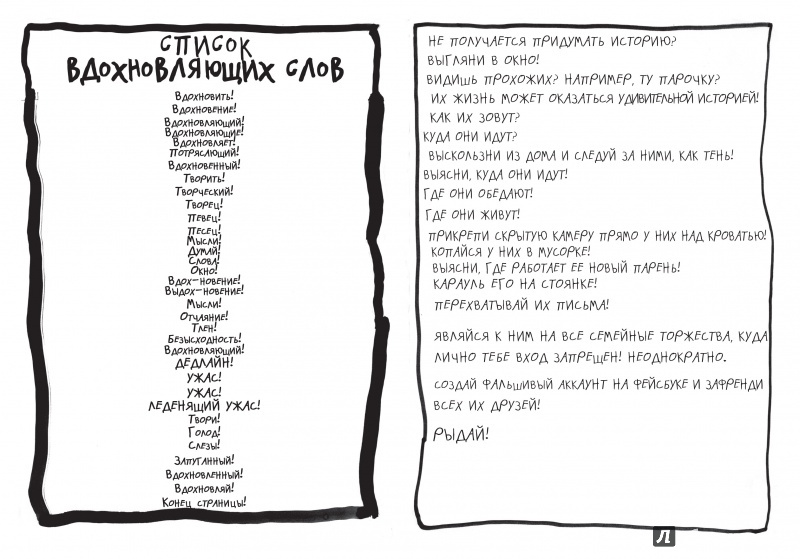 СПИСОК
ВДОХНОВЛЯЮЩИХ СЛОВ
Вдохновить!
Вдохновение!
Вдохновляющий!
Вдохновляющие!
Вдохновляет!
Потрясающий!
Вдохновенный!
Творить!
Творческий!
Творец!
Певец!
Песец!
Мысли!
Думай!
Слова!
Окно!
Вдох-новение!
Выдох-новение!
Мысли!
Отчаяние!
Тлен!
Безысходность!
Вдохновляющий!
ДЕДЛАЙН!
УЖАС!
УЖАС!
ЛЕДЕНЯЩИЙ УЖАС!
Твори!
Голод!
Слезы!
Запуганный!
Вдохновленный!
Вдохновляй!
Конец страницы!
НЕ ПОЛУЧАЕТСЯ ПРИДУМАТЬ ИСТОРИЮ?
ВЫГЛЯНИ В ОКНО!
ВИДИШЬ ПРОХОЖИХ? НАПРИМЕР, ТУ ПАРОЧКУ?
ИХ ЖИЗНЬ МОЖЕТ ОКАЗАТЬСЯ УДИВИТЕЛЬНОЙ ИСТОРИЕЙ!
КАК ИХ ЗОВУТ?
КУДА ОНИ ИДУТ?
ВЫСКОЛЬЗНИ ИЗ ДОМА И СЛЕДУЙ ЗА НИМИ, КАК ТЕНЬ!
ВЫЯСНИ, КУДА ОНИ ИДУТ!
ГДЕ ОНИ ОБЕДАЮТ!
ГДЕ ОНИ ЖИВУТ!
ПРИКРЕПИ СКРЫТУЮ КАМЕРУ ПРЯМО У НИХ НАД КРОВАТЬЮ!
КОПАЙСЯ У НИХ В МУСОРКЕ!
ВЫЯСНИ, ГДЕ РАБОТАЕТ ЕЕ НОВЫЙ ПАРЕНЬ!
КАРАУЛЬ ЕГО НА СТОЯНКЕ!
ПЕРЕХВАТЫВАЙ ИХ ПИСЬМА!
ЯВЛЯЙСЯ К НИМ НА ВСЕ СЕМЕЙНЫЕ ТОРЖЕСТВА, КУДА
ЛИЧНО ТЕБЕ ВХОД ЗАПРЕЩЕН! НЕОДНОКРАТНО.
СОЗДАЙ ФАЛЬШИВЫЙ АККАУНТ НА ФЕЙСБУКЕ И ЗАФРЕНДИ
ВСЕХ ИХ ДРУЗЕЙ!
РЫДАЙ!
Л